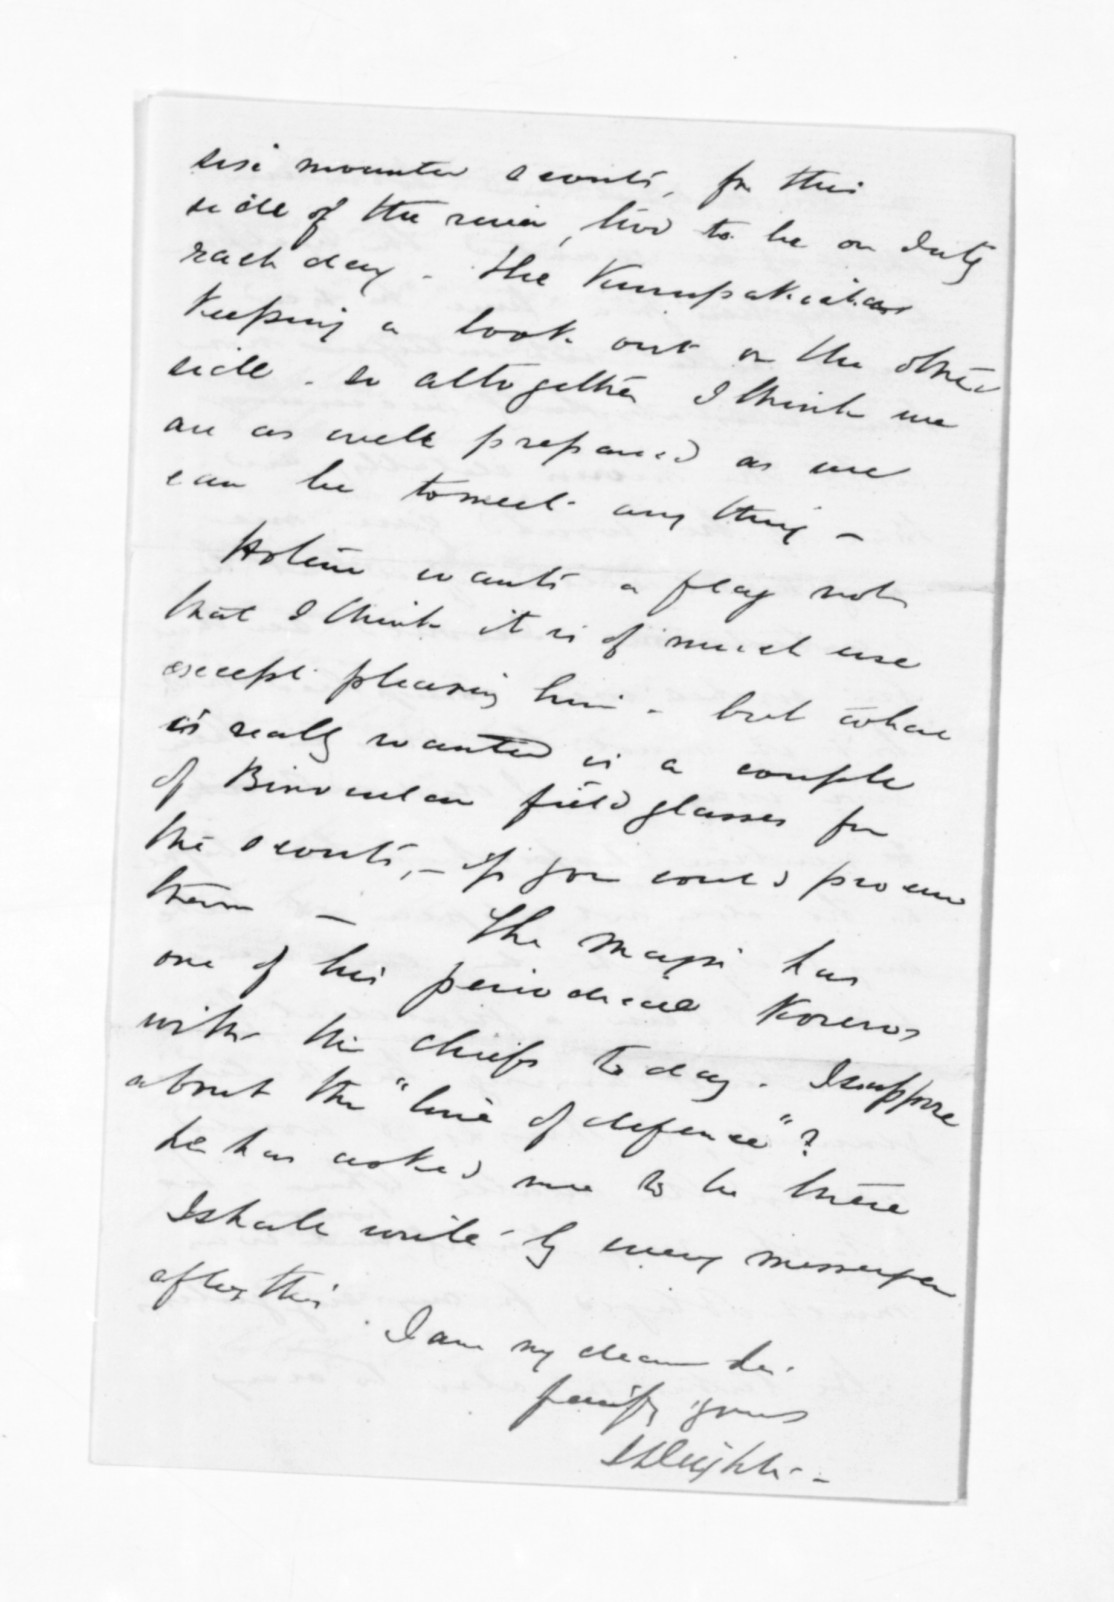 six mounted scouts, for this
side of the river, two to be on duty
each day - the Kurupakiakas
keeping a look out on the other
side - so altogether I think we
are as well prepared as we
can be to meet any thing -
Hotene wants a flag not
that I think it is of much use
except pleasing him - but what
is really wanted is a couple
of Binocular field glasses for
the scouts, - if you could procure
them - The Major has
one of his periodical Koreros
with the chiefs to day. I suppose
about the "line of defence"?
he has asked me to be there
I shall write by every messenger
after this.
I am my dear Sir
faithfy yours